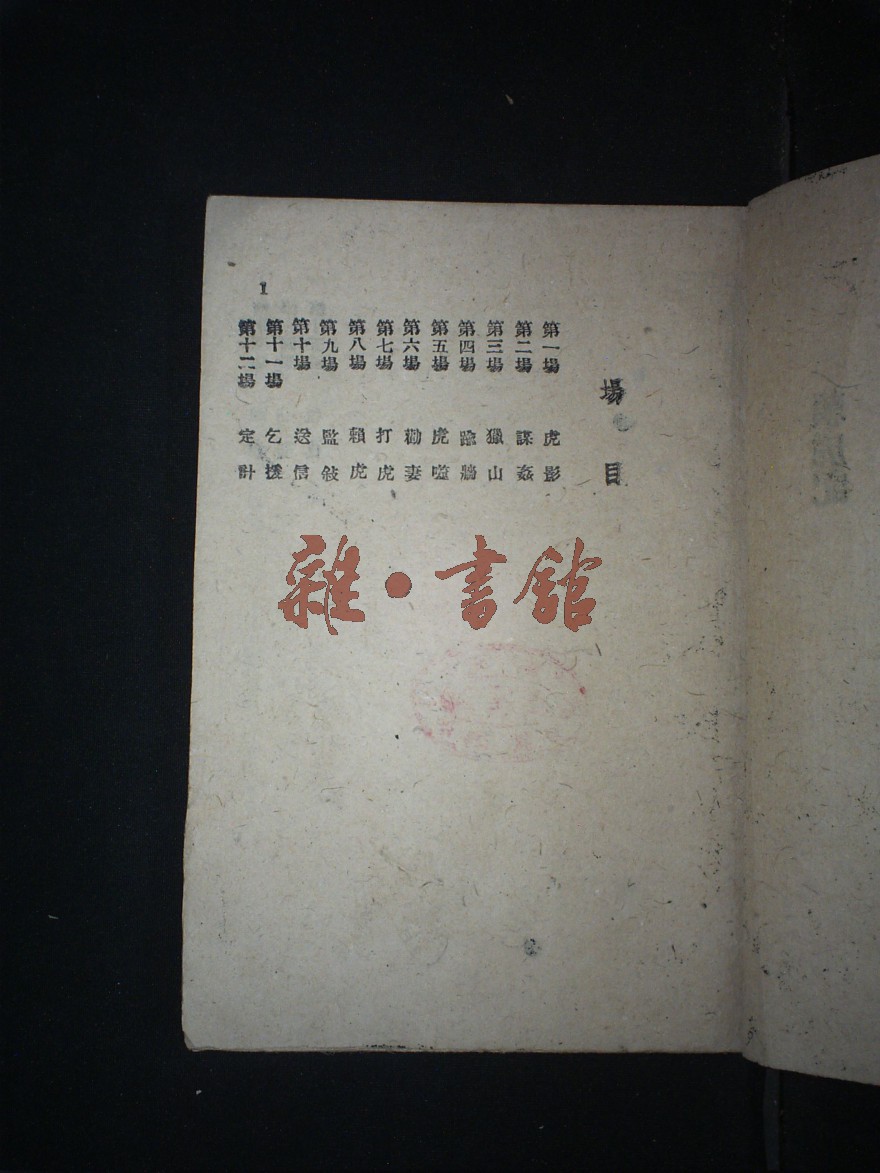 場目
第一場 虎影
第二場 謀姦
第三場 獵山
第四場 跪牆
第五場 虎噬
第六場 勸妻
第七場 打虎
第八場 賴虎
第九場 監敍
第十場 送信
第十一場 乞援
第十二場 定計
1
雜·書舘